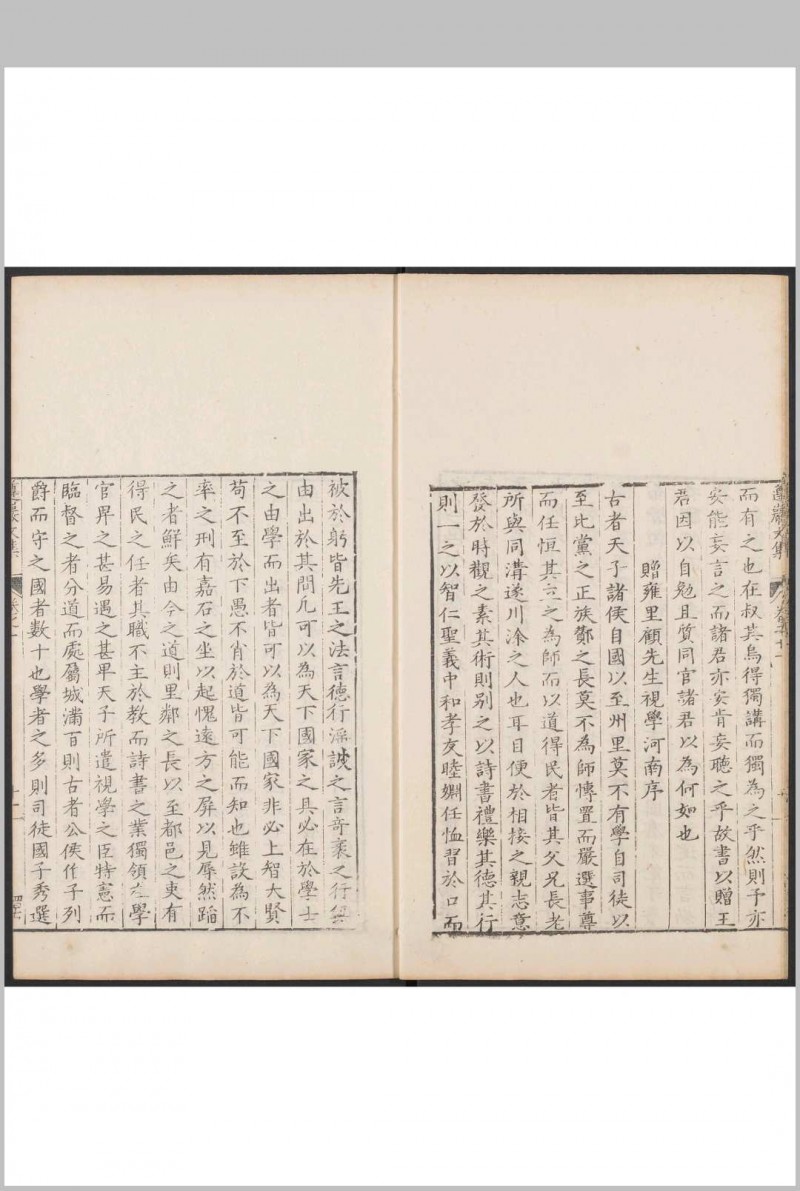 而有之也在叔其烏得獨講而獨為之乎然則予亦
安能妄言之而諸君亦安肯妄聽之乎故書以贈王
君因以自勉且質同官諸君以為何如也
贈雍里顧先生視學河南序
古者天子諸侯自國以至州里莫不有學自司徒以
至比黨之正族酇之長莫不為師傅置而嚴選事尊
而任恒其立之為師而以道得民者皆其父兄長老
所與同溝遂川涂之人也耳目便於相接之親志意
發於時觀之素其術則別之以詩書禮樂其德其行
則一之以智仁聖義中和孝友睦婣任恤習於口而
被於躬皆先王之法言德行淫詖之言奇袤之行無
由出於其間凢可以為天下國家之具必在於學士
之由學而出者皆可以為天下國家非必上智大賢
苟不至於下愚不肖於道皆可能而知也雖設為不
率之刑有嘉石之坐以起愧遠方之屏以見辱然蹈
之者鮮矣由今之道則里鄰之長以至都邑之吏有
得民之任者其職不主於教而詩書之業獨領之學
官畀之甚易遇之甚畢天子所遣視學之臣特憲而
臨督之者分道而處屬城滿百則古者公侯伯子列
爵而守之國者數十也學者之多則司徒國子秀選